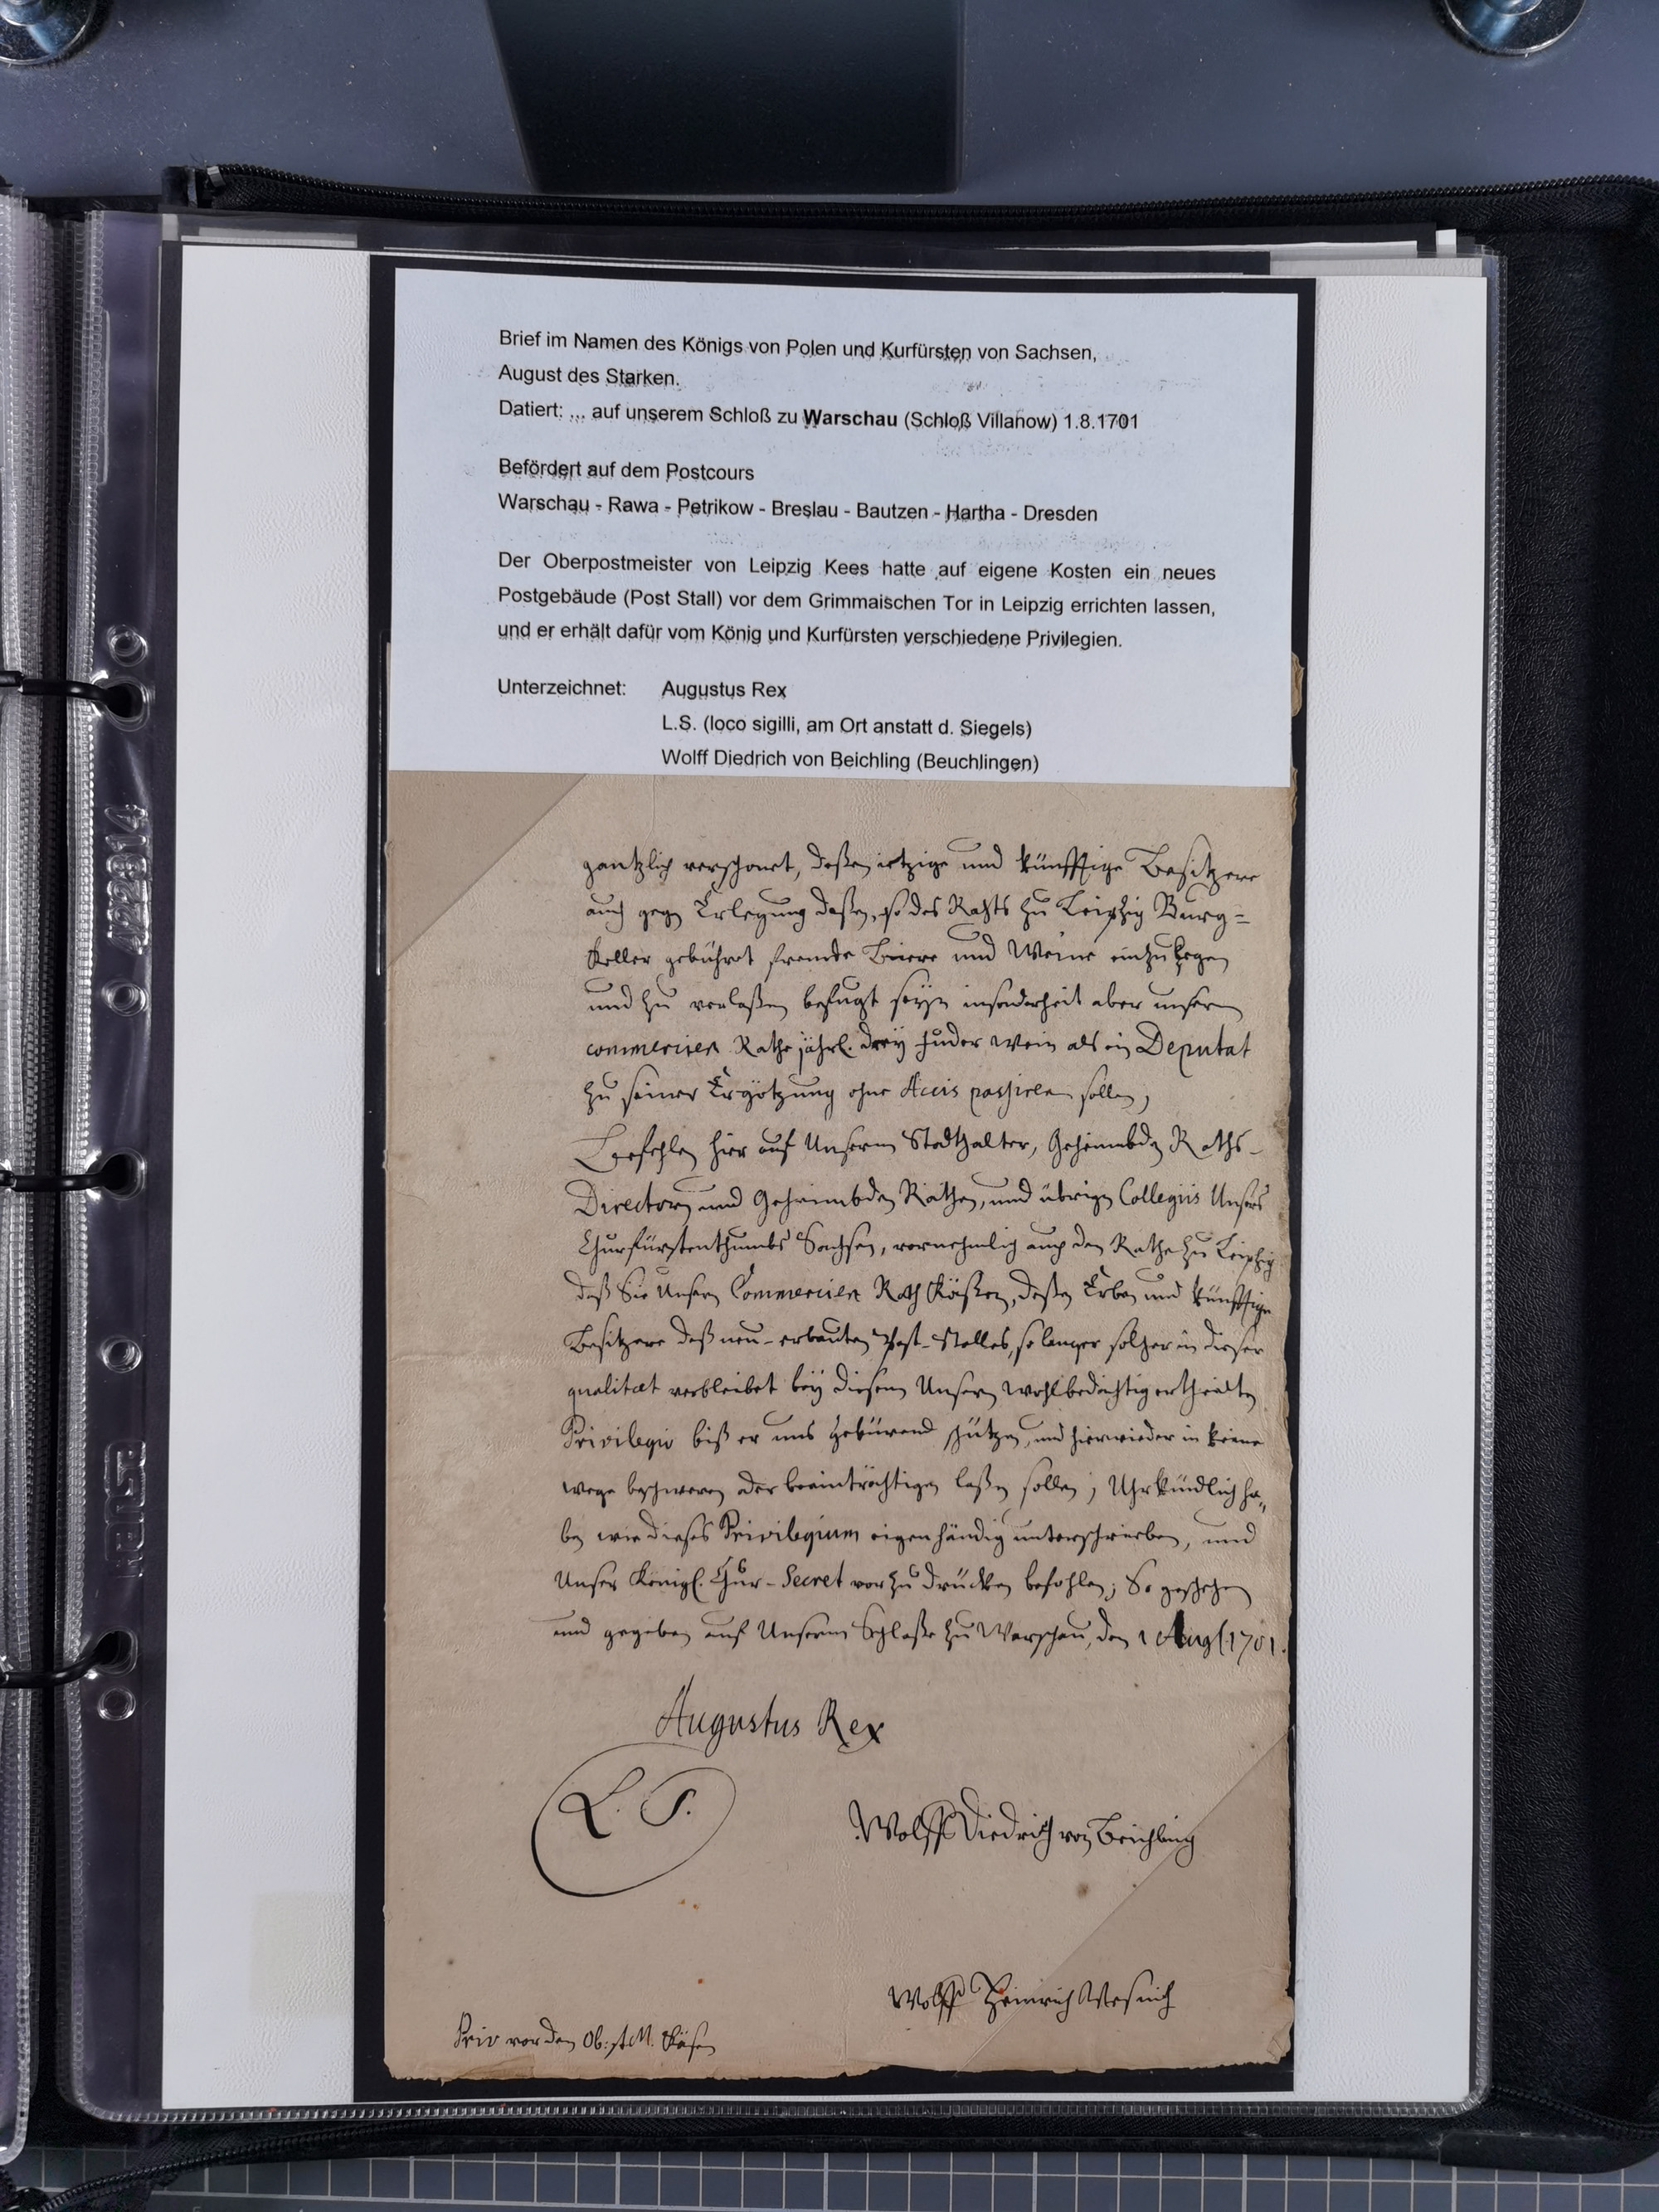 Brief im Namen des Königs von Polen und Kurfürsten von Sachsen,
August des Starken.
Datiert: ... auf unserem Schloß zu Warschau (Schloß Villanow) 1.8.1701
Befördert auf dem Postcours
Warschau - Rawa - Petrikow - Breslau - Bautzen - Hartha - Dresden
Der Oberpostmeister von Leipzig Kees hatte auf eigene Kosten ein neues
Postgebäude (Post Stall) vor dem Grimmaischen Tor in Leipzig errichten lassen,
und er erhält dafür vom König und Kurfürsten verschiedene Privilegien.
Unterzeichnet: Augustus Rex
L.S. (loco sigilli, am Ort anstatt d. Siegels)
Wolff Diedrich von Beichling (Beuchlingen)
gantzlich verschonet, deßen ietzige und künfftige Besitzere
auch gegen Erlegung deßen, so des Raths zu Leipzig Burg=
Keller gebühret fremde Biere und Weine einzulegen
und zu verlaßen befugt seyn insonderheit aber unsern
commercien Rathe jährl. drey Fuder Wein als ein Deputat
zu seiner Ergötzung ohne Accis passiren sollen,
Befehlen hier auf Unserm Stadthalter, Geheimbden Raths-
Directorn und Geheimbden Räthen, und übrigen Collegiis Unsers
Churfürstenthumbs Sachsen, vornehmlig auch den Rathe zu Leipzig
daß Sie Unsern Commercien Rath Käßen, deßen Erben und künfftige
Besitzere deß neu-erbauten Post-Stalles, so lange solcher in dieser
qualitæt verbleibet bey diesem Unsern wohlbedächtig ertheilten
Privilegio biß er uns gebürend schützen, und hierwieder in keine
wege beschweren oder beeinträchtigen laßen sollen; Uhrkündlich ha„
ben wir dieses Privilegium eigenhändig unterschrieben, und
Unser Königl. Chur-Secret vorzudrücken befohlen; So geschehen
und gegeben auf Unserm Schloße zu Warschau, den 1 Aug 1701.
Augustus Rex
L. S.
Wolff Diedrich von Beichling
Wolff Heinrich
Priv vor den Ob: M. Käsen
422814